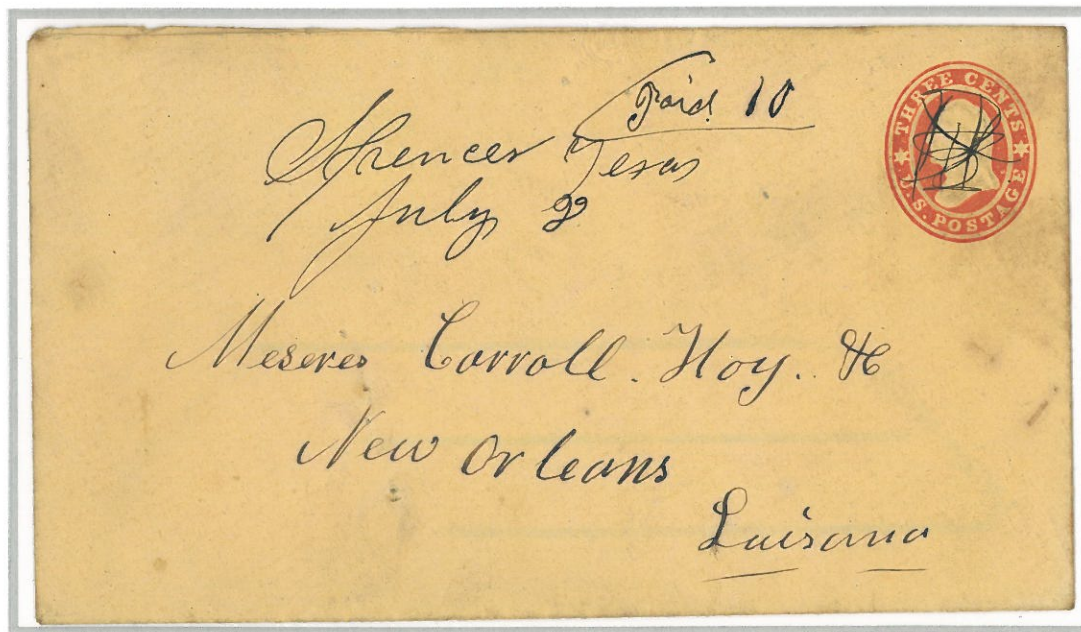 Paid 10
Spencer Texas
July 22
THREE CENTS
U.S. POSTAGE
Messres Carroll. Hoy. &C
New Orleans
Luisana